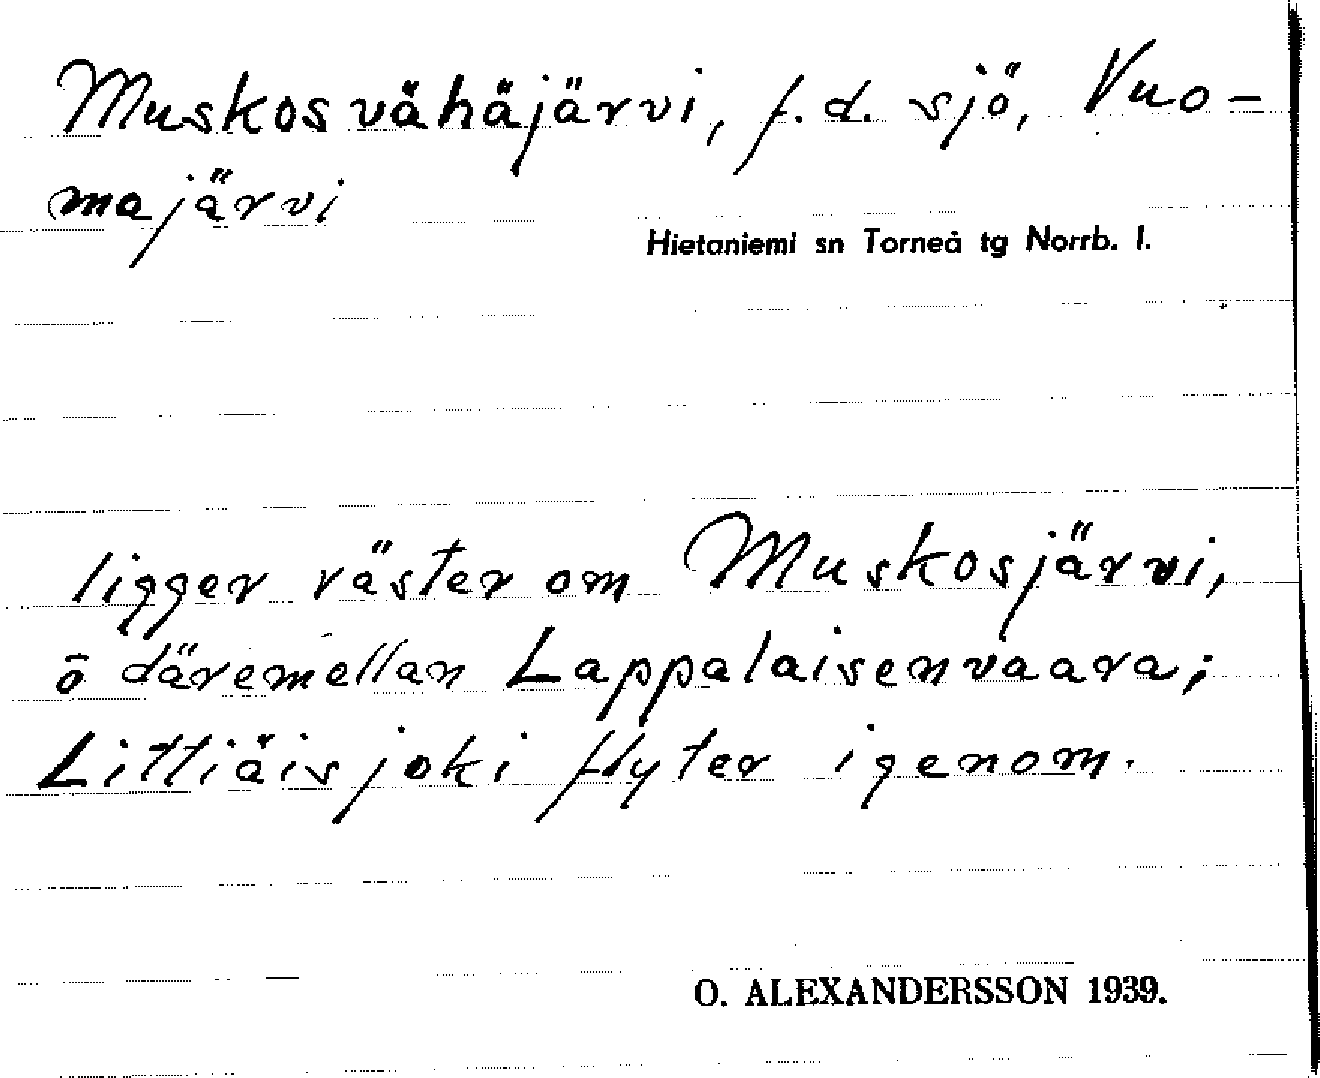 Muskosvähäjärvi, f.d. sjö, Vuo-
majärvi
Hietaniemi sn Torneå tg Norrb. l.
ligger väster om Muskosjärvi,
ō däremellan Lappalaisenvaara;
Littiäisjoki flyter igenom.
O. ALEXANDERSSON 1939.